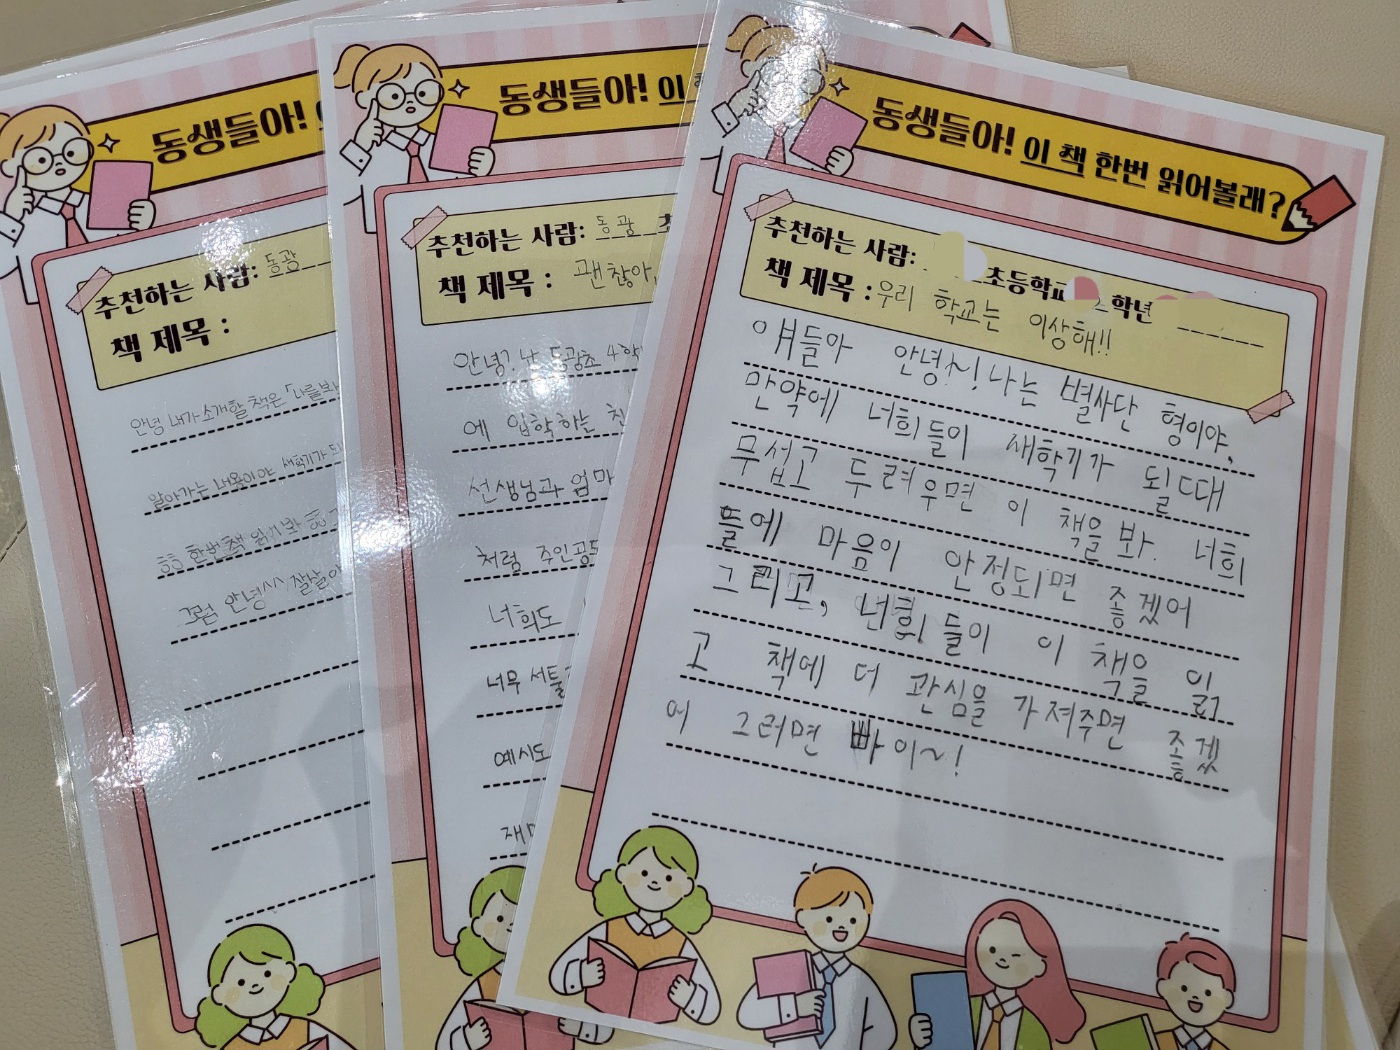 동생들아!
추천하는 사람: 동광
책 제목 :
안녕 내가 소개할 책은 「나를
알아가는 내용이야 새학기가
한번 책 읽어봐
그럼 안녕^^ 잘날
동생들아! 이
추천하는 사람: 동광 초
책 제목 : 괜찮아,
안녕? 난 동광초 4학
에 입학하는 친
선생님과 엄마
처럼 주인공
너희도
너무 서툴
예시도
재미
동생들아! 이 책 한번 읽어볼래?
추천하는 사람: 초등학교 학년
책 제목 : 우리 학교는 이상해!!
얘들아 안녕~! 나는 별사단 형이야.
만약에 너희들이 새학기가 될때
무섭고 두려우면 이 책을 봐. 너희
들에 마음이 안정되면 좋겠어
그리고, 너희들이 이 책을 읽
고 책에 더 관심을 가져주면 좋겠
어 그러면 빠이~!